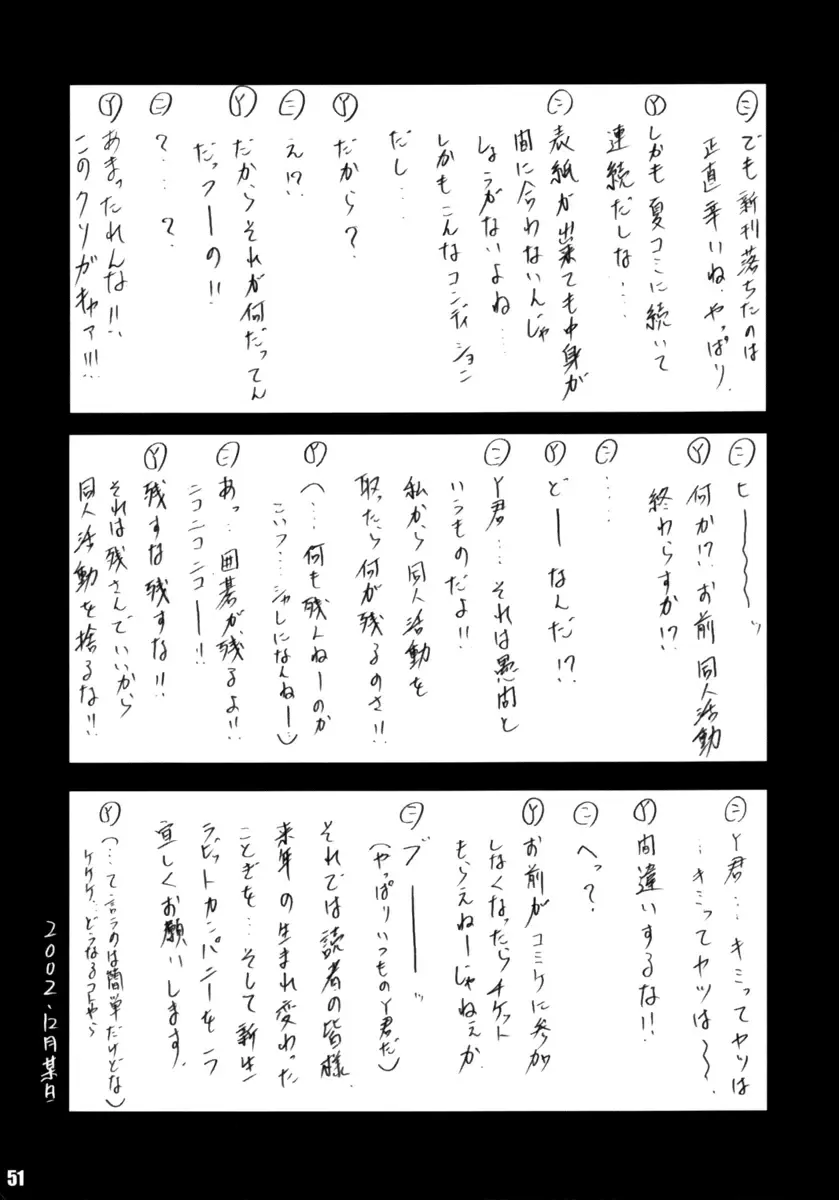 ㊁でも新刊落ちたのは
正直辛いね、やっぱり。
Ⓨしかも夏コミに続いて
連続だしな‥‥
㊁表紙が出来ても中身が
間に合わないんじゃ
しょうがないよね‥‥
しかもこんなコンディション
だし‥‥
Ⓨだから?
㊁え!?
Ⓨだからそれが何だってん
だっつーの!!
㊁?‥‥?
Ⓨあまったれんな!!
このクソガキャァ!!!
㊁ヒー〜〜〜ッ
Ⓨ何か!?お前同人活動
終わらすか!?
㊁‥‥‥
Ⓨどーなんだ!?
㊁Y君‥‥それは愚問と
いうものだよ!!
私から同人活動を
取ったら何が残るのさ!!
Ⓨ(‥‥何も残んねーのか
こいつ‥‥シャレになんねー‥)
㊁あっ‥囲碁が残るよ!!
ニコニコニコー!!
Ⓨ残すな残すな!!
それは残さんでいいから
同人活動を捨るな!!
㊁Y君‥‥キミってヤツは
‥キミってヤツは〜〜
Ⓨ間違いするな!!
㊁へっ?
Ⓨお前がコミケに参加
しなくなったらチケット
もらえねーじゃねぇか
㊁ブーーーッ
(やっぱりいつものY君だ)
それでは読者の皆様
来年の生まれ変わった
ことぎを‥‥そして新生
ラビットカンパニーをヨ
宜しくお願いします。
Ⓨ(‥‥て言うのは簡単だけどな
ケケケ‥どうなるコトやら)
2002.12月某日
51